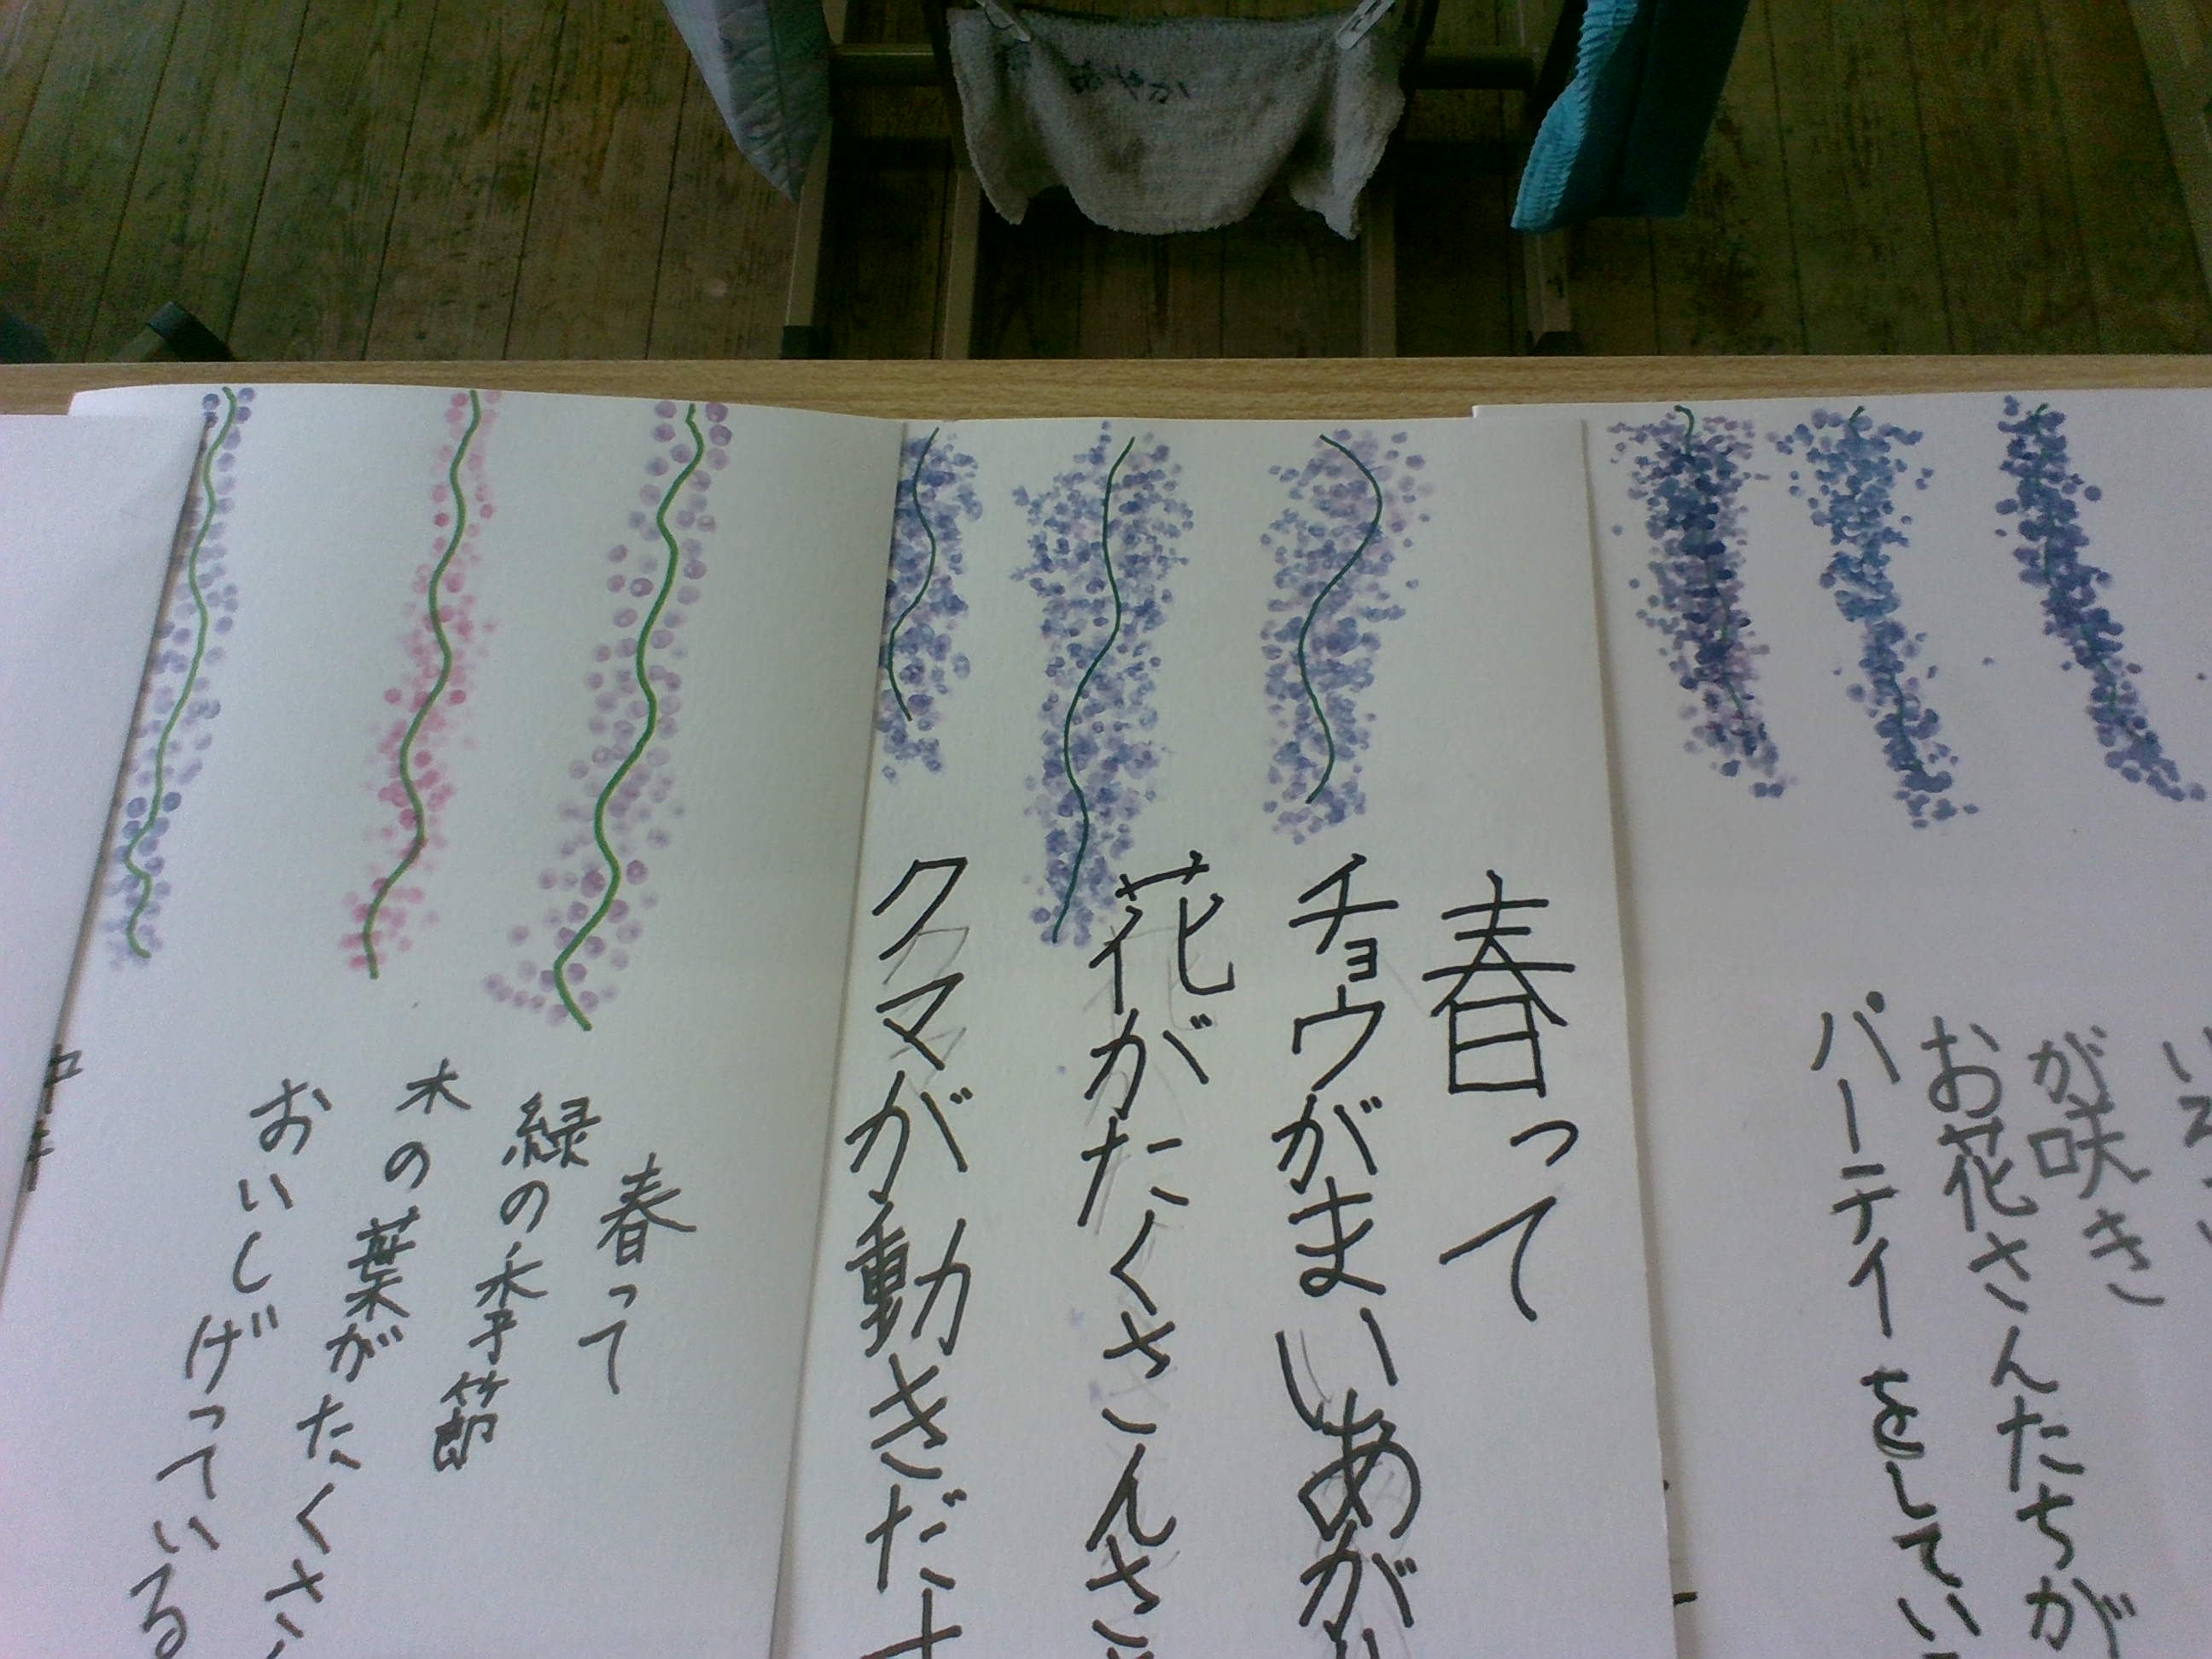 が咲き
お花さんたちが
パーティーをしてい
春って
チョウがまいあが
花がたくさんさ
クマが動きだ
春って
緑の季節
木の葉がたくさ
おいしげっている